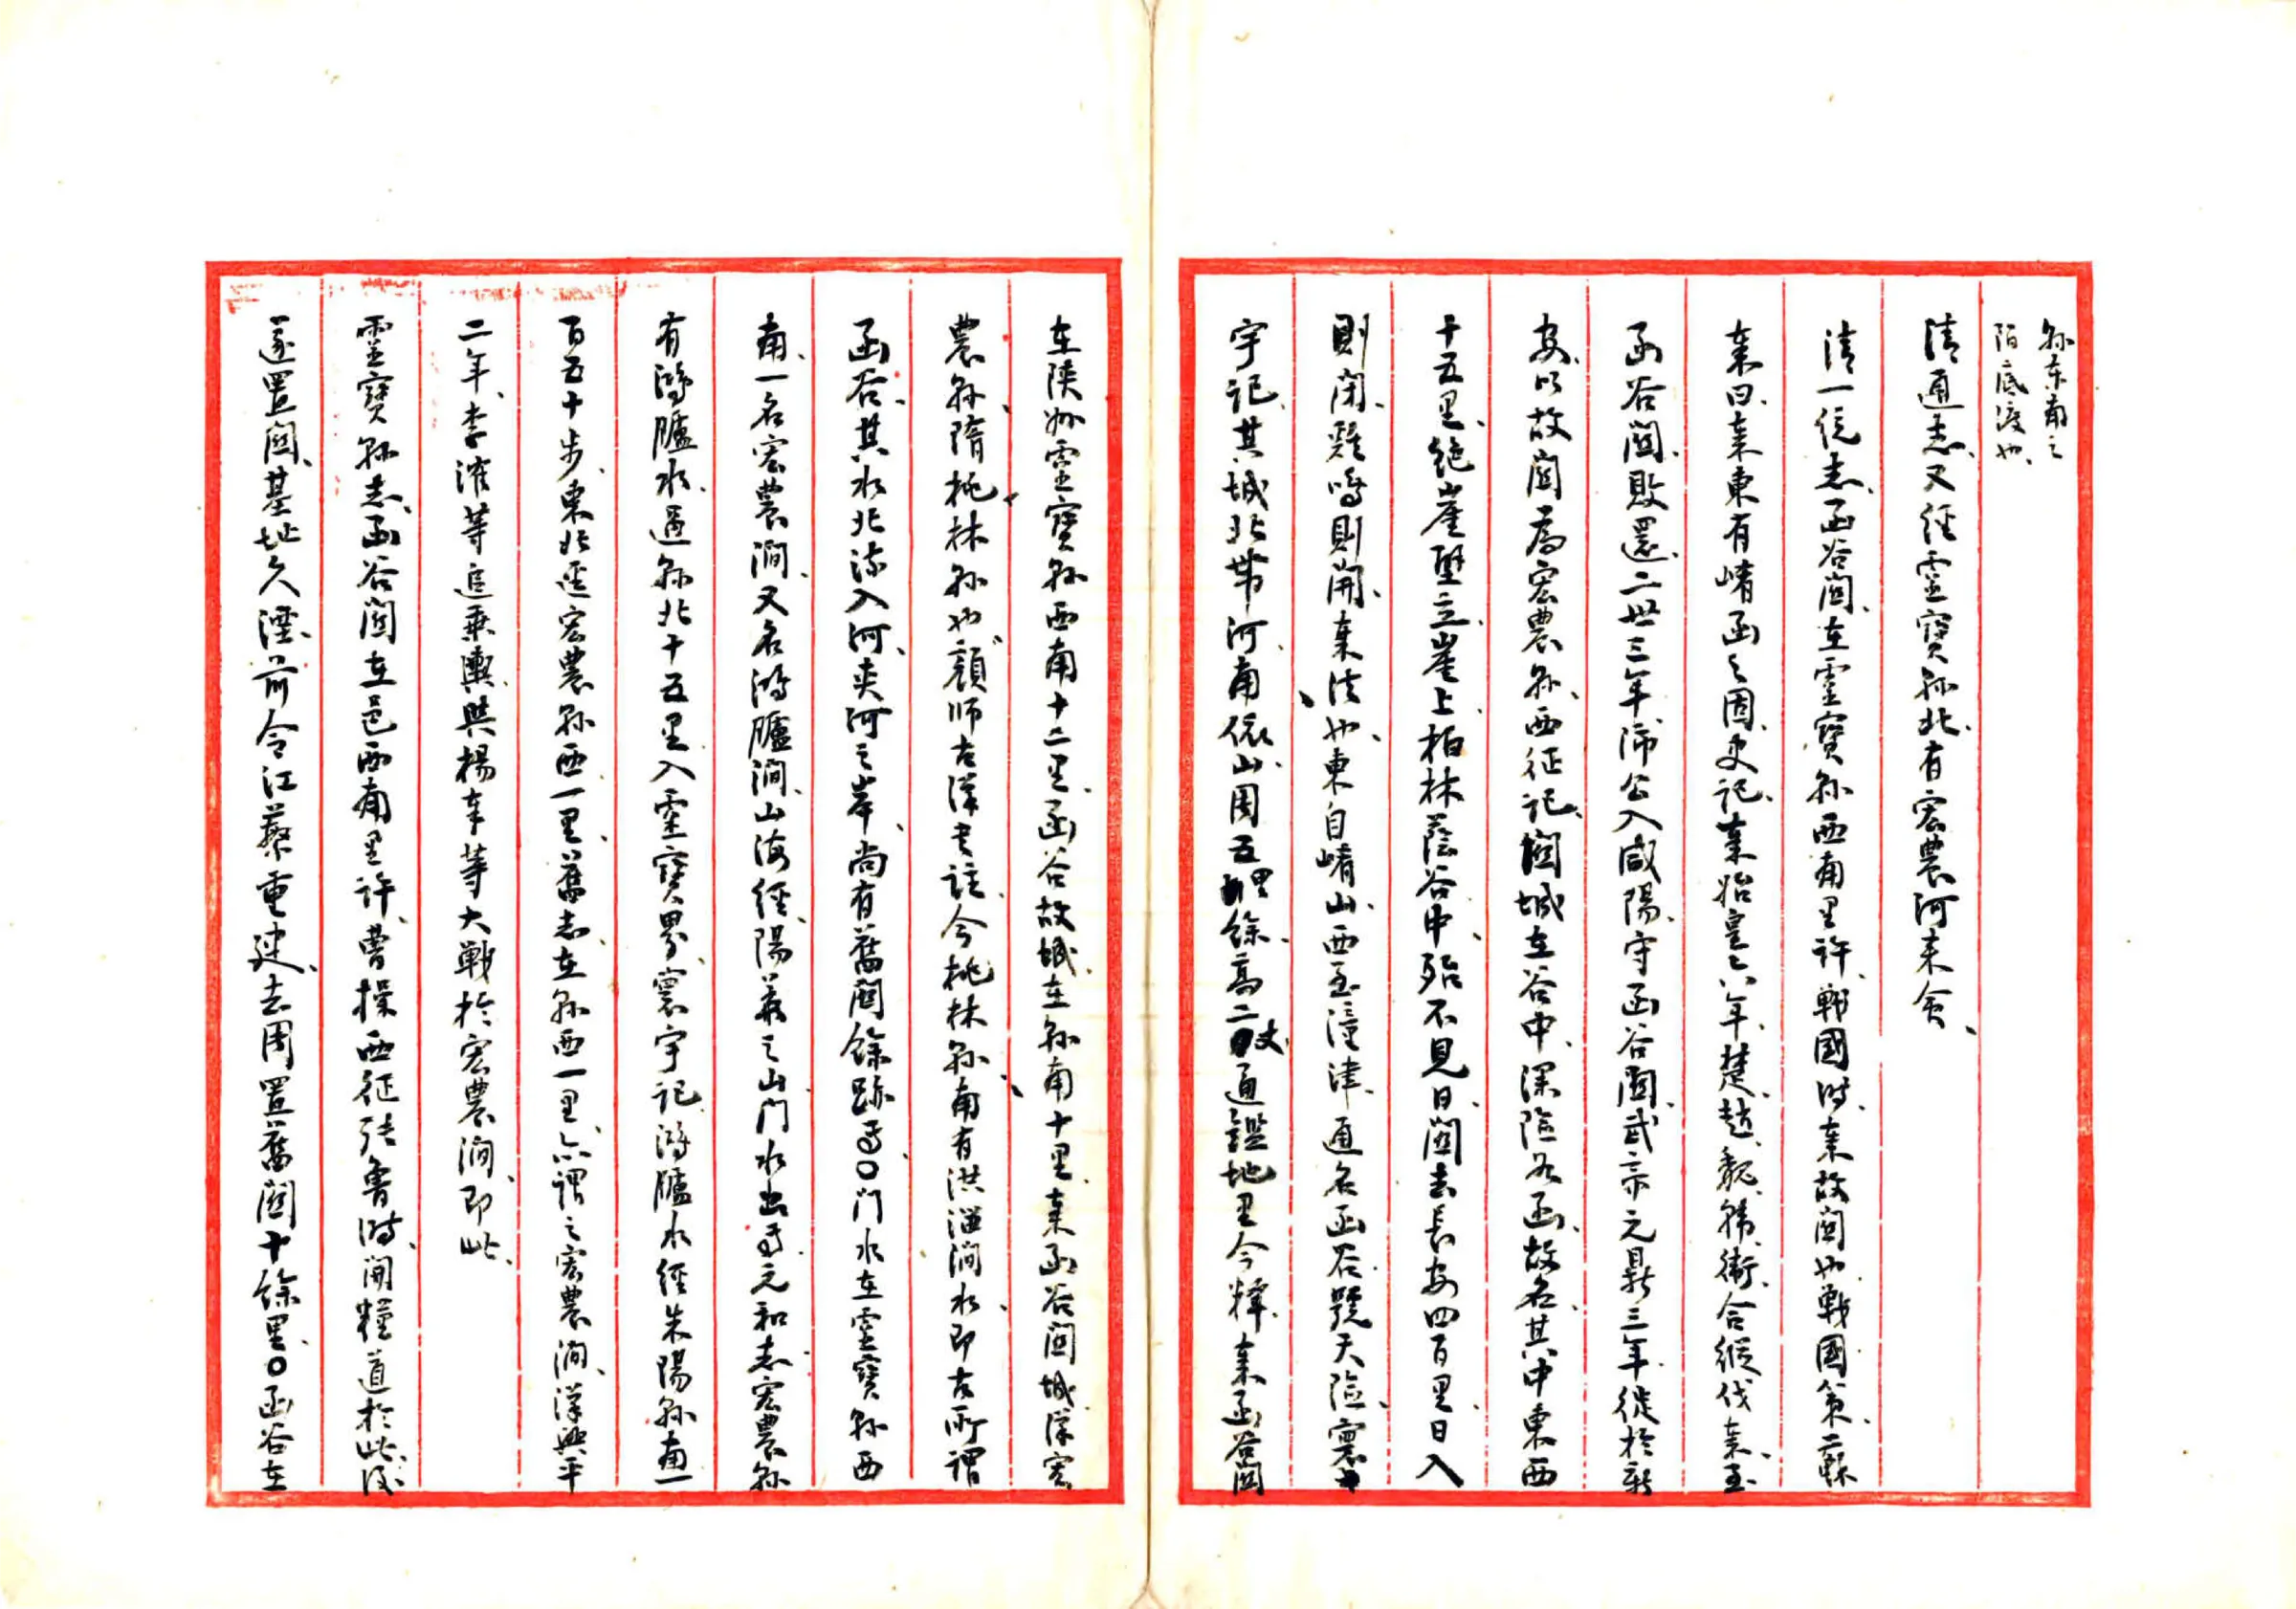 縣東南之
陌底渡也、
清通志、又經靈寶縣北、有宏農河來會、
清一統志、函谷關、在靈寶縣西南里許、戰國時、秦故關也、戰國策、蘇
秦曰、秦東有崤函之固、史記、秦始皇六年、楚、趙、魏、韓、衛、合縱伐秦、至
函谷關、敗還、二世三年、沛公入咸陽、守函谷關、武帝元鼎三年、徙於新
安、以故關爲宏農縣、西征記、關城在谷中、深險如函、故名、其中東西
十五里、絕崖壁立、崖上柏林蔭谷中、殆不見日、關去長安四百里、日入
則閉、雞鳴則開、秦法也、東自崤山、西至潼津、通名函谷、號天險、寰
宇記、其城北帶河、南依山、周五里餘、高二丈、通鑑地里今釋、秦函谷關
在陝州靈寶縣西南十二里、函谷故城、在縣南十里、秦函谷關城、漢宏
農縣、隋桃林縣也、顏師古漢書註、今桃林縣南、有洪溜澗水、即古所謂
函谷、其水北流入河、夾河之岸、尚有舊關餘跡焉〇門水在靈寶縣西
南、一名宏農澗、又名鴻臚澗、山海經、陽華之山、門水出焉、元和志、宏農縣
有鴻臚水、過縣北十五里、入靈寶界、寰宇記、鴻臚水、經朱陽縣南一
百五十步、東北逕宏農縣西一里、舊志、在縣西一里、亦謂之宏農澗、漢興平
二年、李傕等追乘輿、與楊奉等大戰於宏農澗、即此、
靈寶縣志、函谷關在邑西南里許、曹操西征張魯時、開糧道於此、後
遂置關、基址久湮、前令江蘩重建、去周置舊關十餘里、〇函谷在